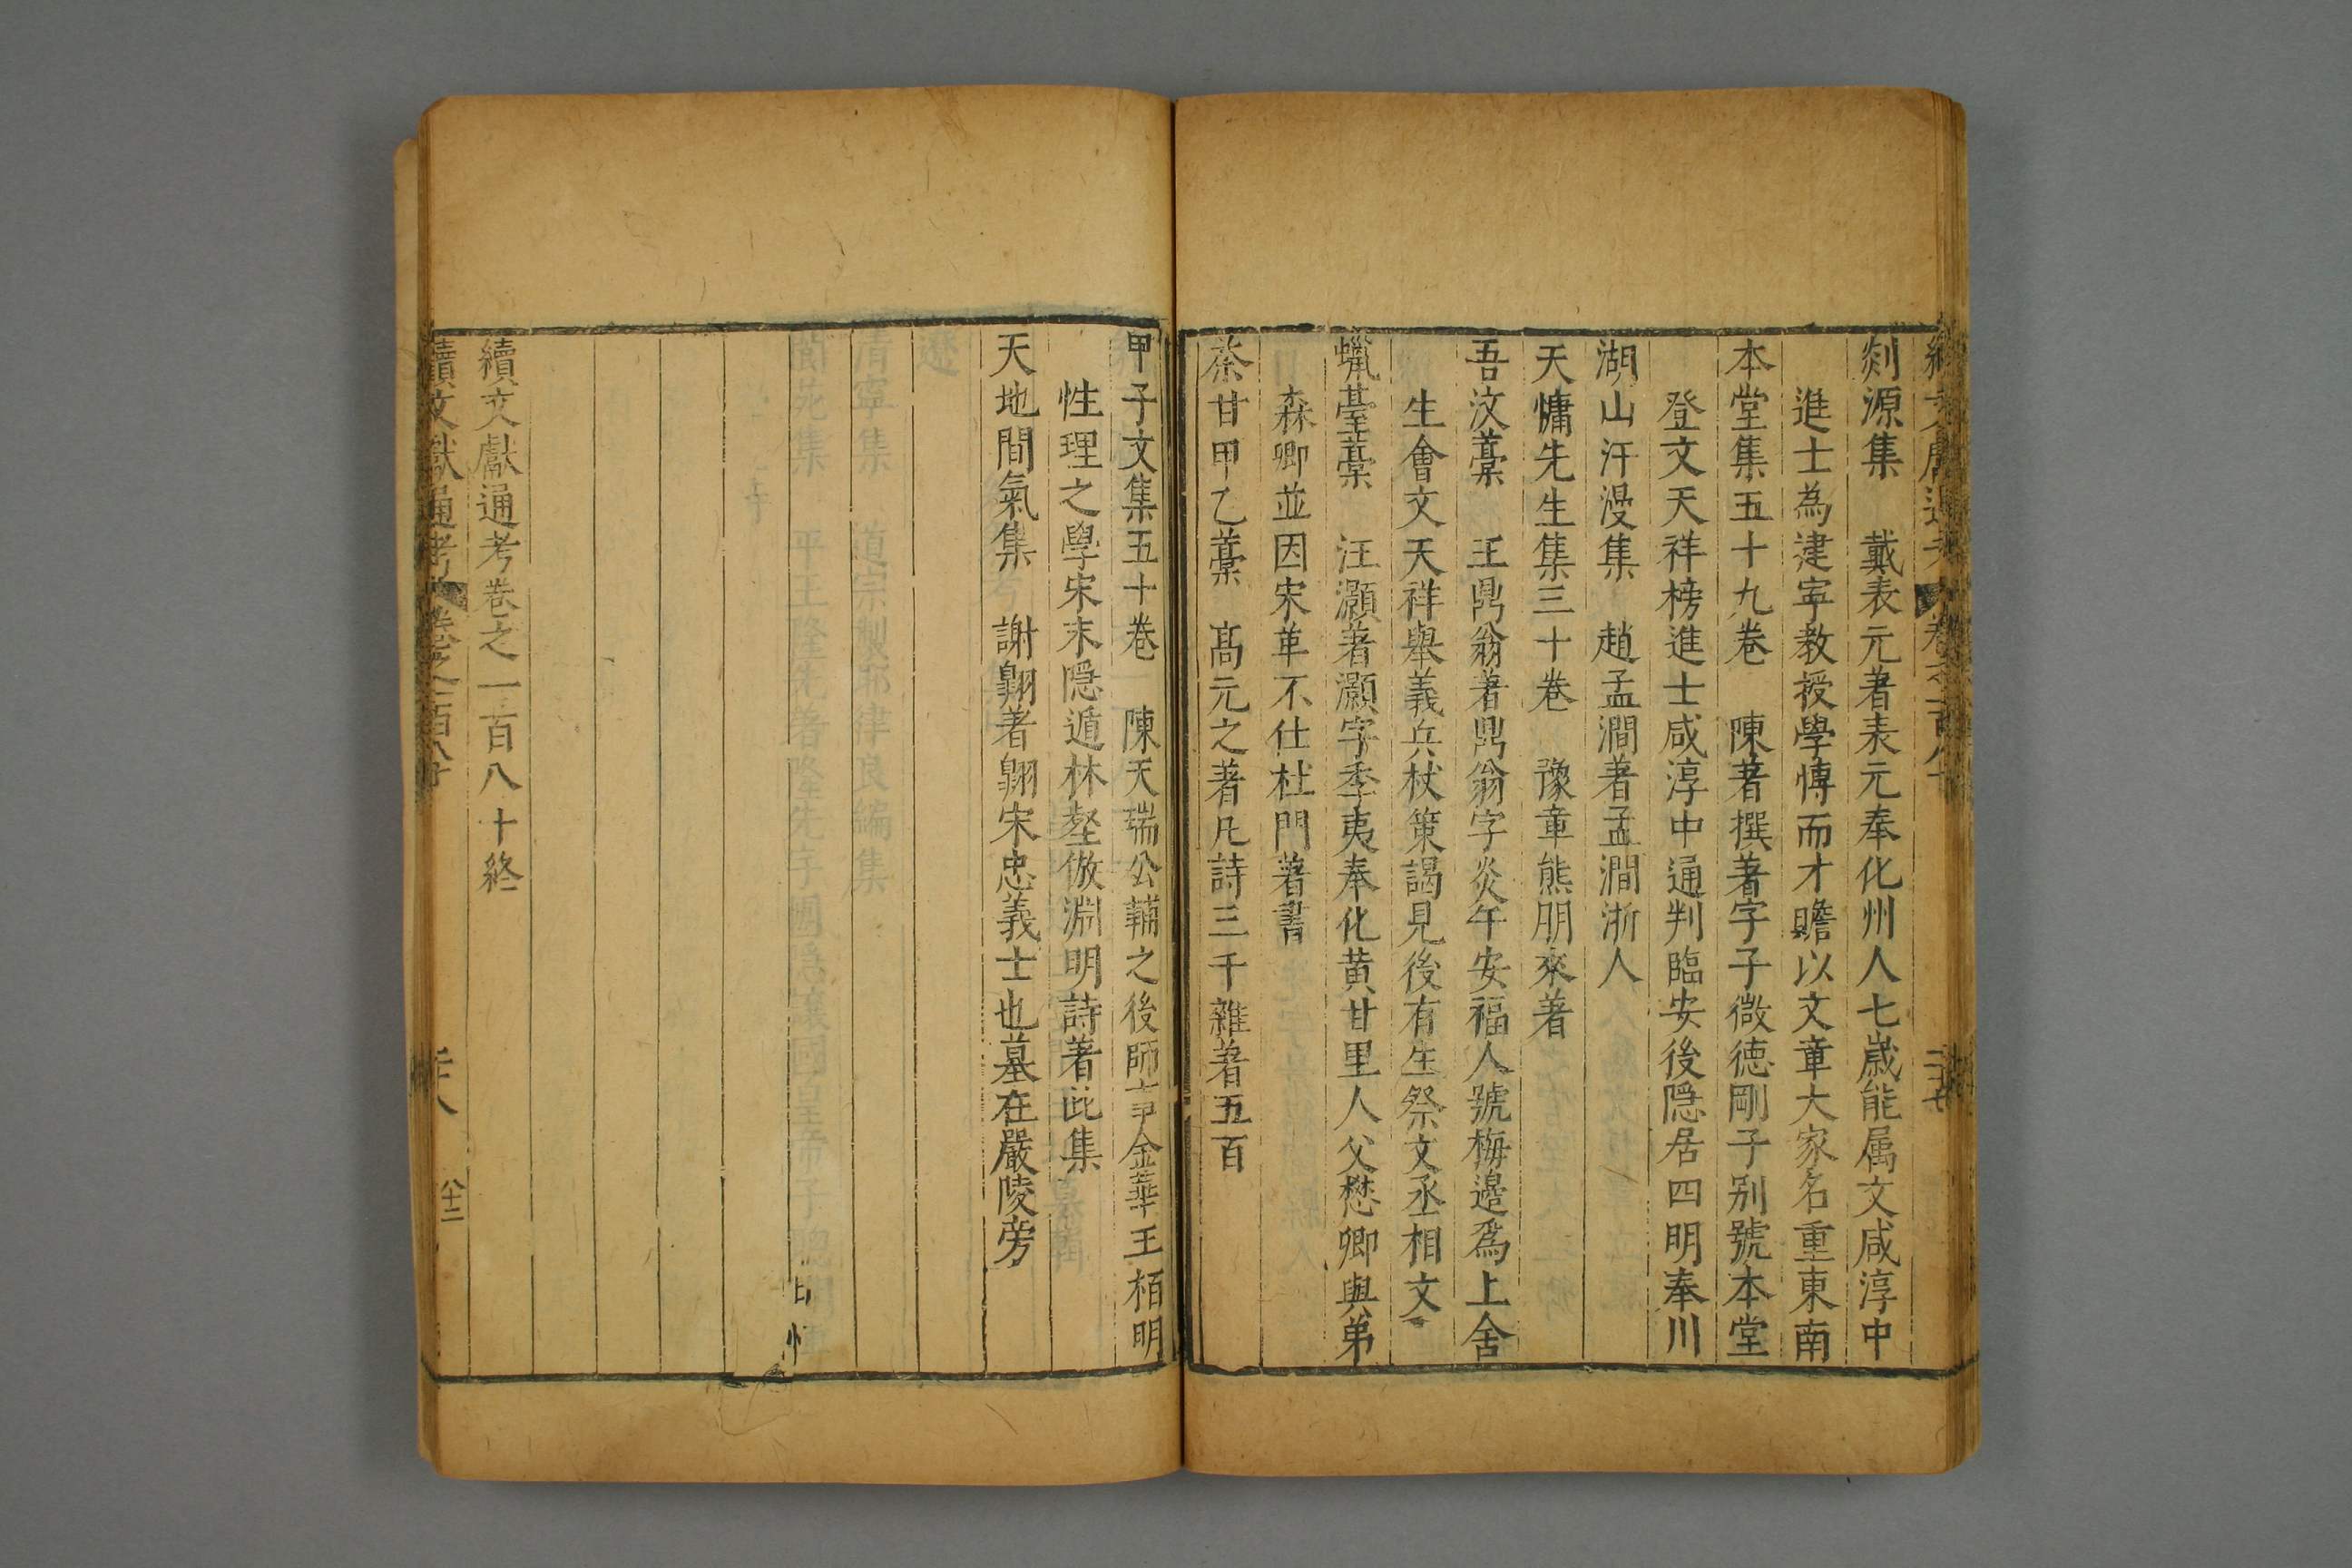 剡源集 戴表元著表元奉化州人七歲能属文咸淳中
進士為建寧教授學愽而才贍以文章大家名重東南
本堂集五十九卷 陳著撰著字子微徳剛子别號本堂
登文天祥榜進士咸淳中通判臨安後隠居四明奉川
湖山汗漫集 趙孟澗著孟澗浙人
天慵先生集三十卷 豫章熊朋來著
吾汶藁 王鼎翁著鼎翁字炎午安福人號梅邊爲上舍
生會文天祥舉義兵杖策謁見後有生祭文丞相文
蠟臺藁 汪灝著灝字季夷奉化黄甘里人父懋卿與弟
森卿並因宋革不仕杜門著書
茶甘甲乙藁 髙元之著凡詩三千雜著五百
甲子文集五十卷 陳天瑞公輔之後師事金華王栢明
性理之學宋末隠遁林壑倣淵明詩著此集
天地間氣集 謝翺著翺宋忠義士也墓在嚴陵旁
續文獻通考卷之一百八十終
續文獻通考 卷之一百八十
八十二